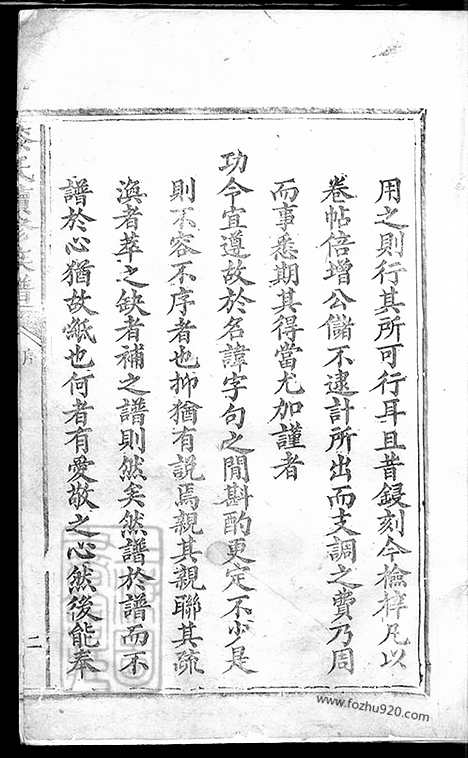 用之則行其所可行耳且昔鋟刻今檢梓凡以
卷帖倍增公儲不逮計所出而支調之費乃周
而事悉期其得當尤加謹者
功令宜遵故於名諱字句之間斟酌更定不少是
則不容不序者也抑猶有説焉親其親聯其疏
渙者萃之缺者補之譜則然矣然譜於譜而不
譜於心猶故紙也何者有愛敬之心然後能奉
氏續修族譜
序
二
www.fozhu920.com